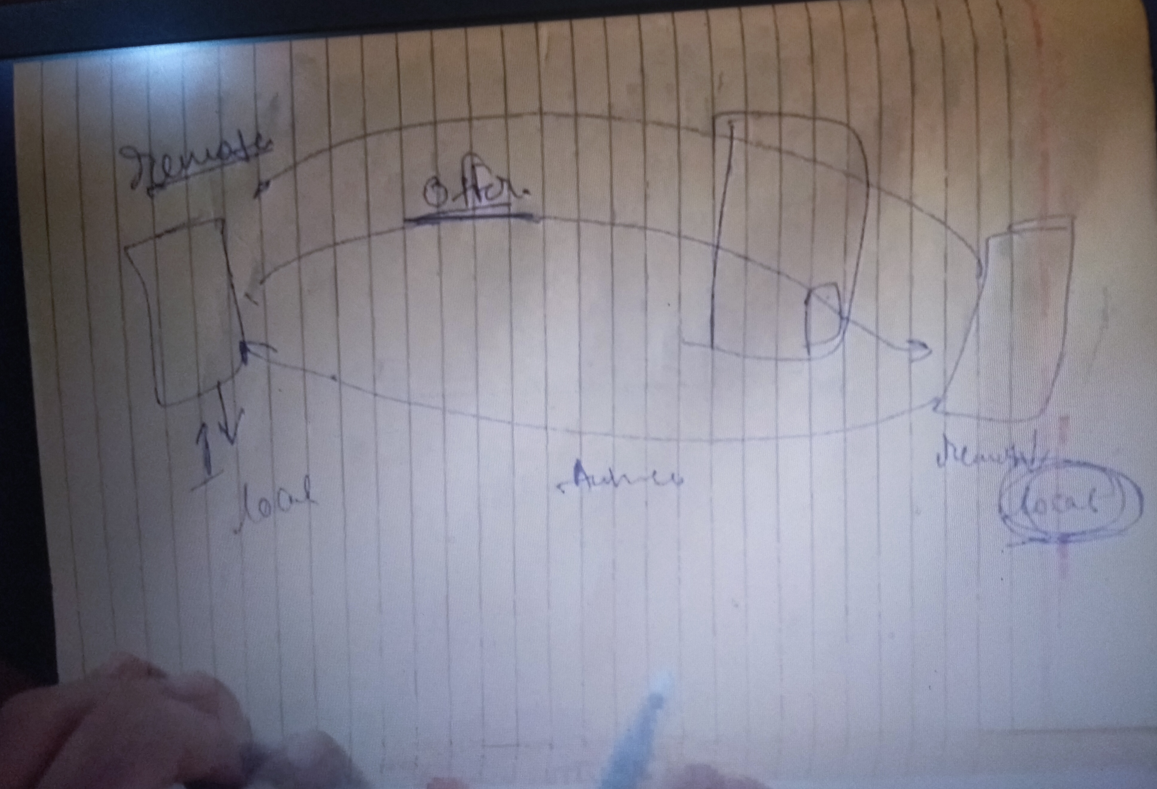 Remote
Offer.
local
Remote
local